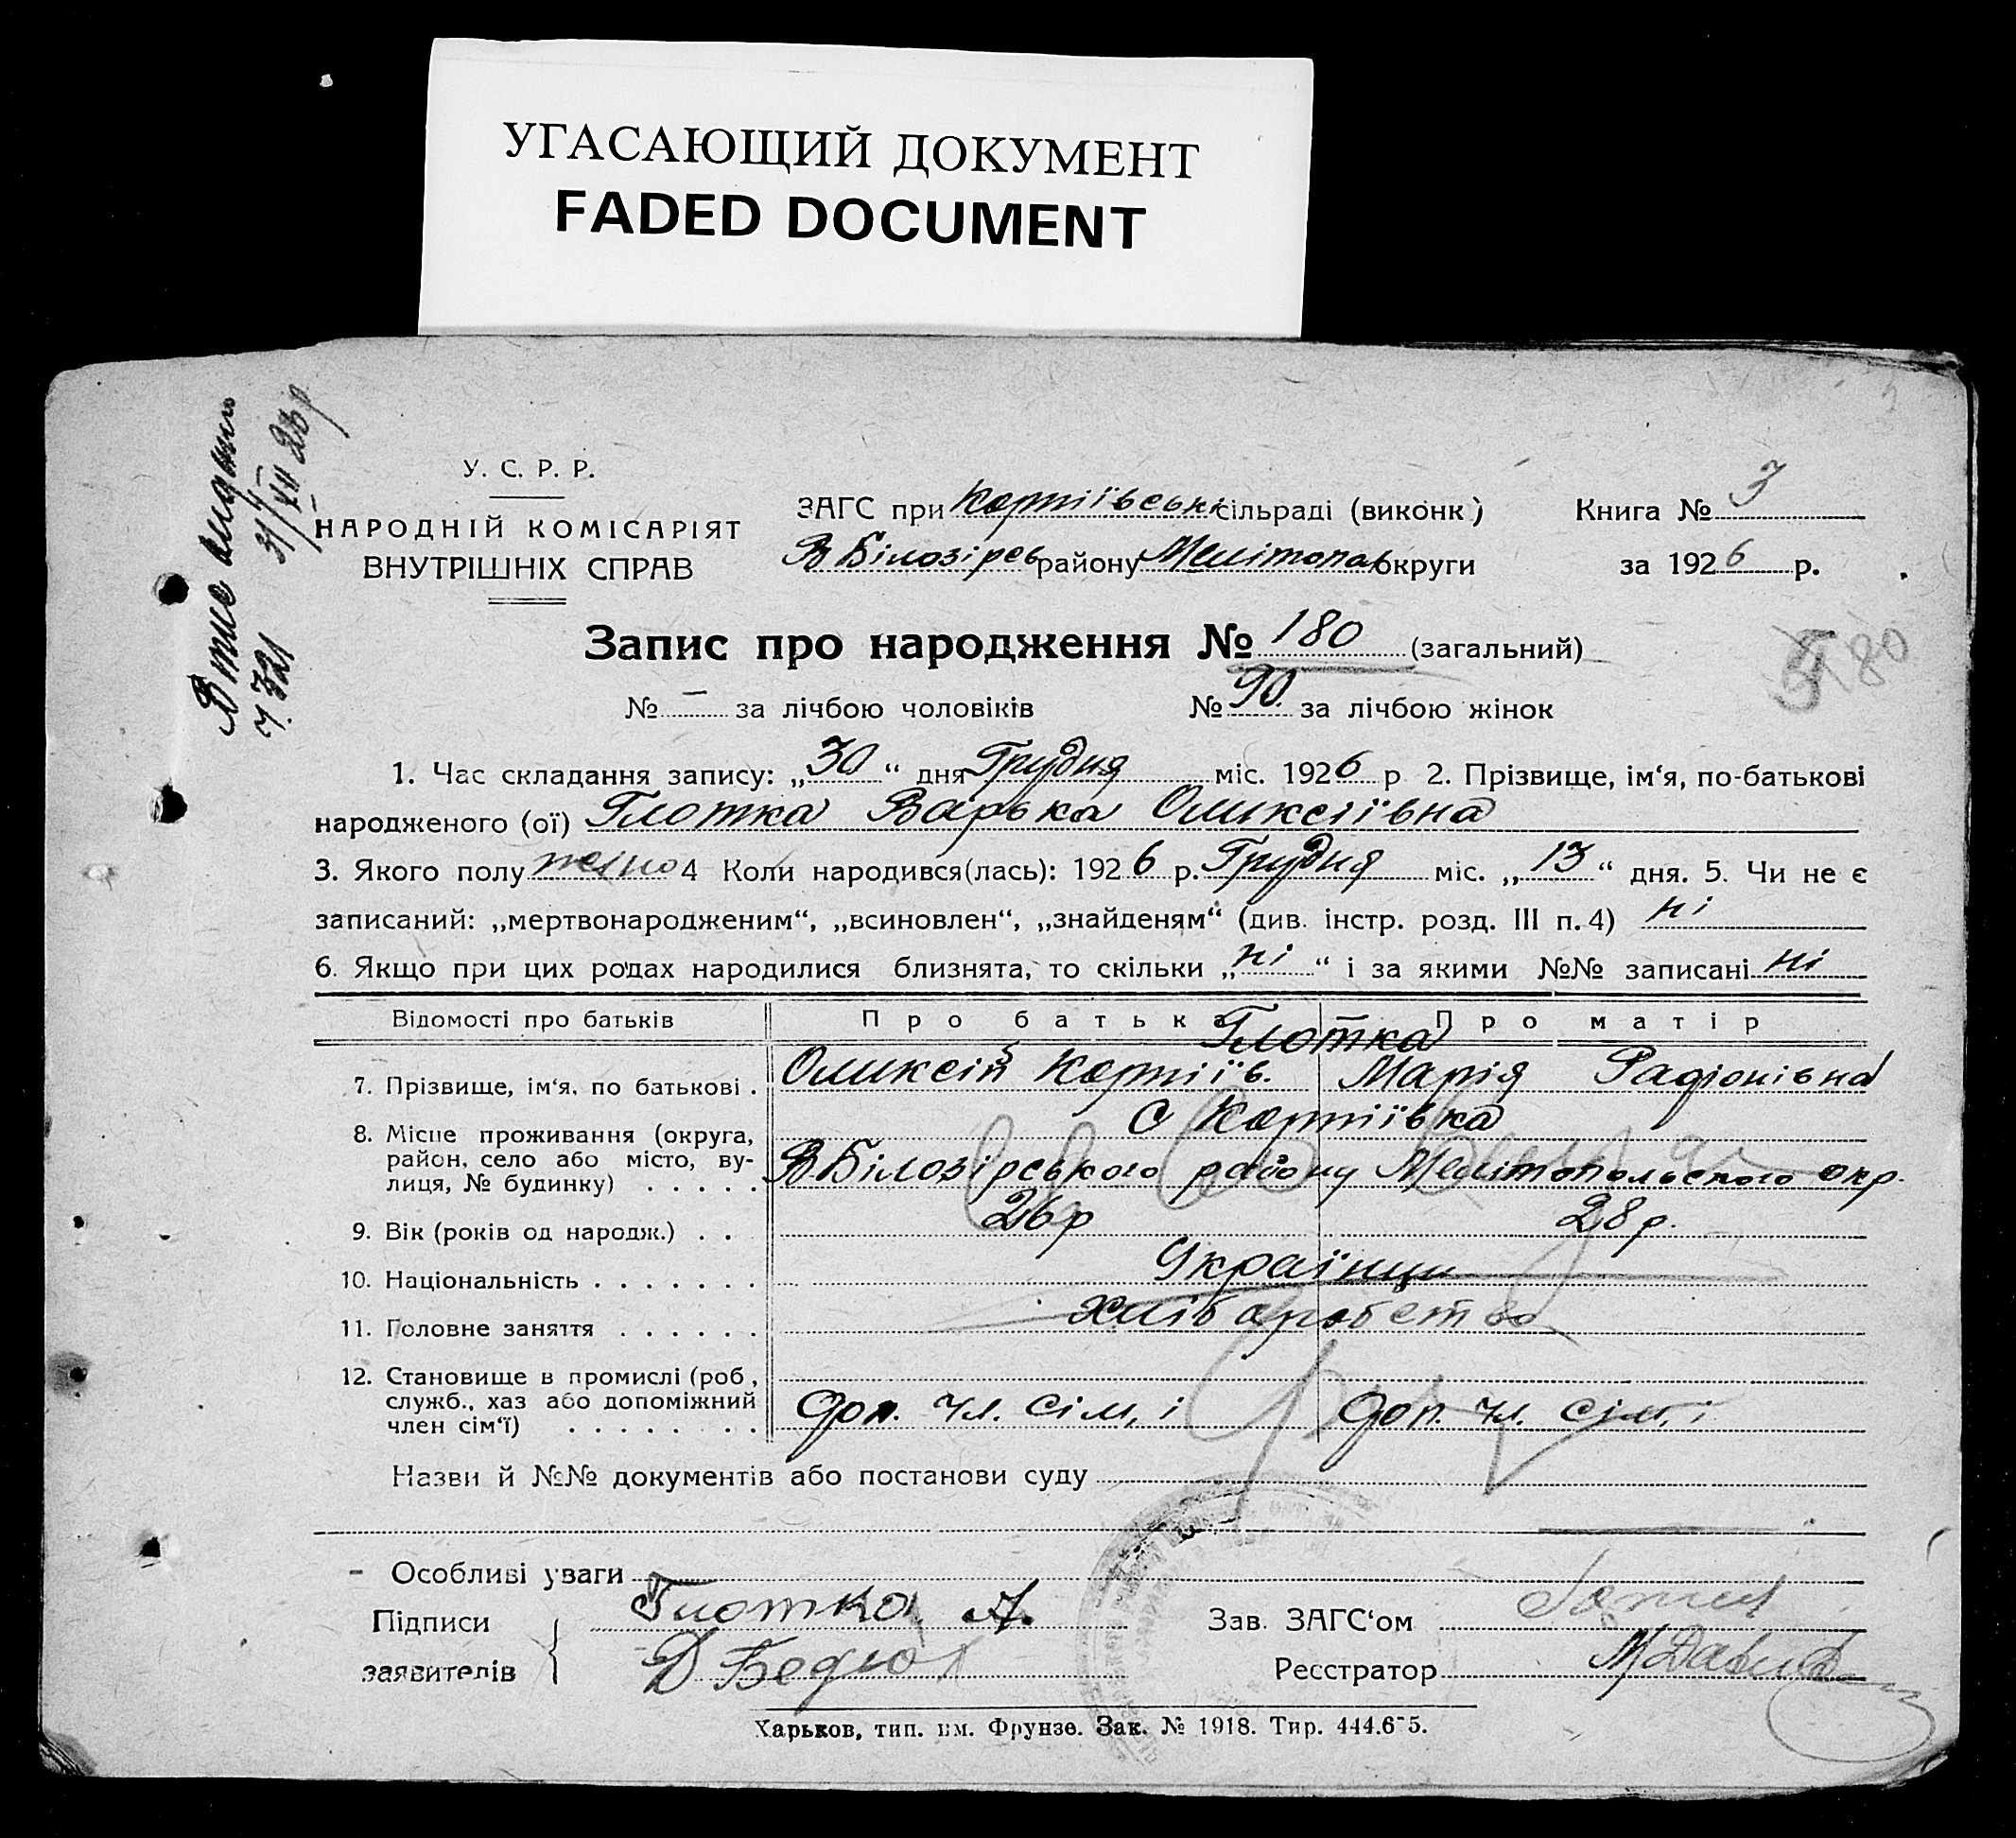 УГАСАЮЩИЙ ДОКУМЕНТ
FADED DOCUMENT
31/XII 26р
У. С. Р. Р.
НАРОДНІЙ КОМІСАРІЯТ
ВНУТРІШНІХ СПРАВ
ЗАГС при Корніївськ сільраді (виконк)
В Білозірев району Мелітопол округи
Книга № 3
за 1926 р.
Запис про народження № 180 (загальний)
180
№ — за лічбою чоловіків № 90. за лічбою жінок
1. Час складання запису: „30“ дня Грудня міс. 1926 р 2. Прізвище, ім‘я, по-батькові
народженого (ої) Глотка Варька Оликсіївна
3. Якого полу жіно 4 Коли народився(лась): 1926 р. Грудня міс. „13“ дня. 5. Чи не є
записаний: „мертвонародженим“, „всиновлен“, „знайденям“ (див. інстр. розд. III п. 4) ні
6. Якщо при цих родах народилися близнята, то скільки „ні“ і за якими №№ записані ні
Відомості про батьків Про батька Про матір
Глотка
7. Прізвище, ім‘я, по батькові . Оликсій Корніїв. Марія Радіонівна
С Корніївка
8. Місце проживання (округа,
район, село або місто, ву-
лиця, № будинку) . . . . . В Білозірського району Мелітопольского окр.
9. Вік (років од народж.) . . 26р 28р.
10. Національність . . . . . . . Українци
11. Головне заняття . . . . . . Хлібаробство
12. Становище в промислі (роб,
служб., хаз або допоміжний
член сім‘ї) . . . . . . . Доп. чл. сім,і Доп. чл. сім,і
Назви й №№ документів або постанови суду
Особливі уваги
Підписи
заявителів
Глотка А.
Д Бедю
Зав. ЗАГС‘ом
Реєстратор
Харьков, тип. им. Фрунзе. Зак. № 1918. Тир. 444.6-5.